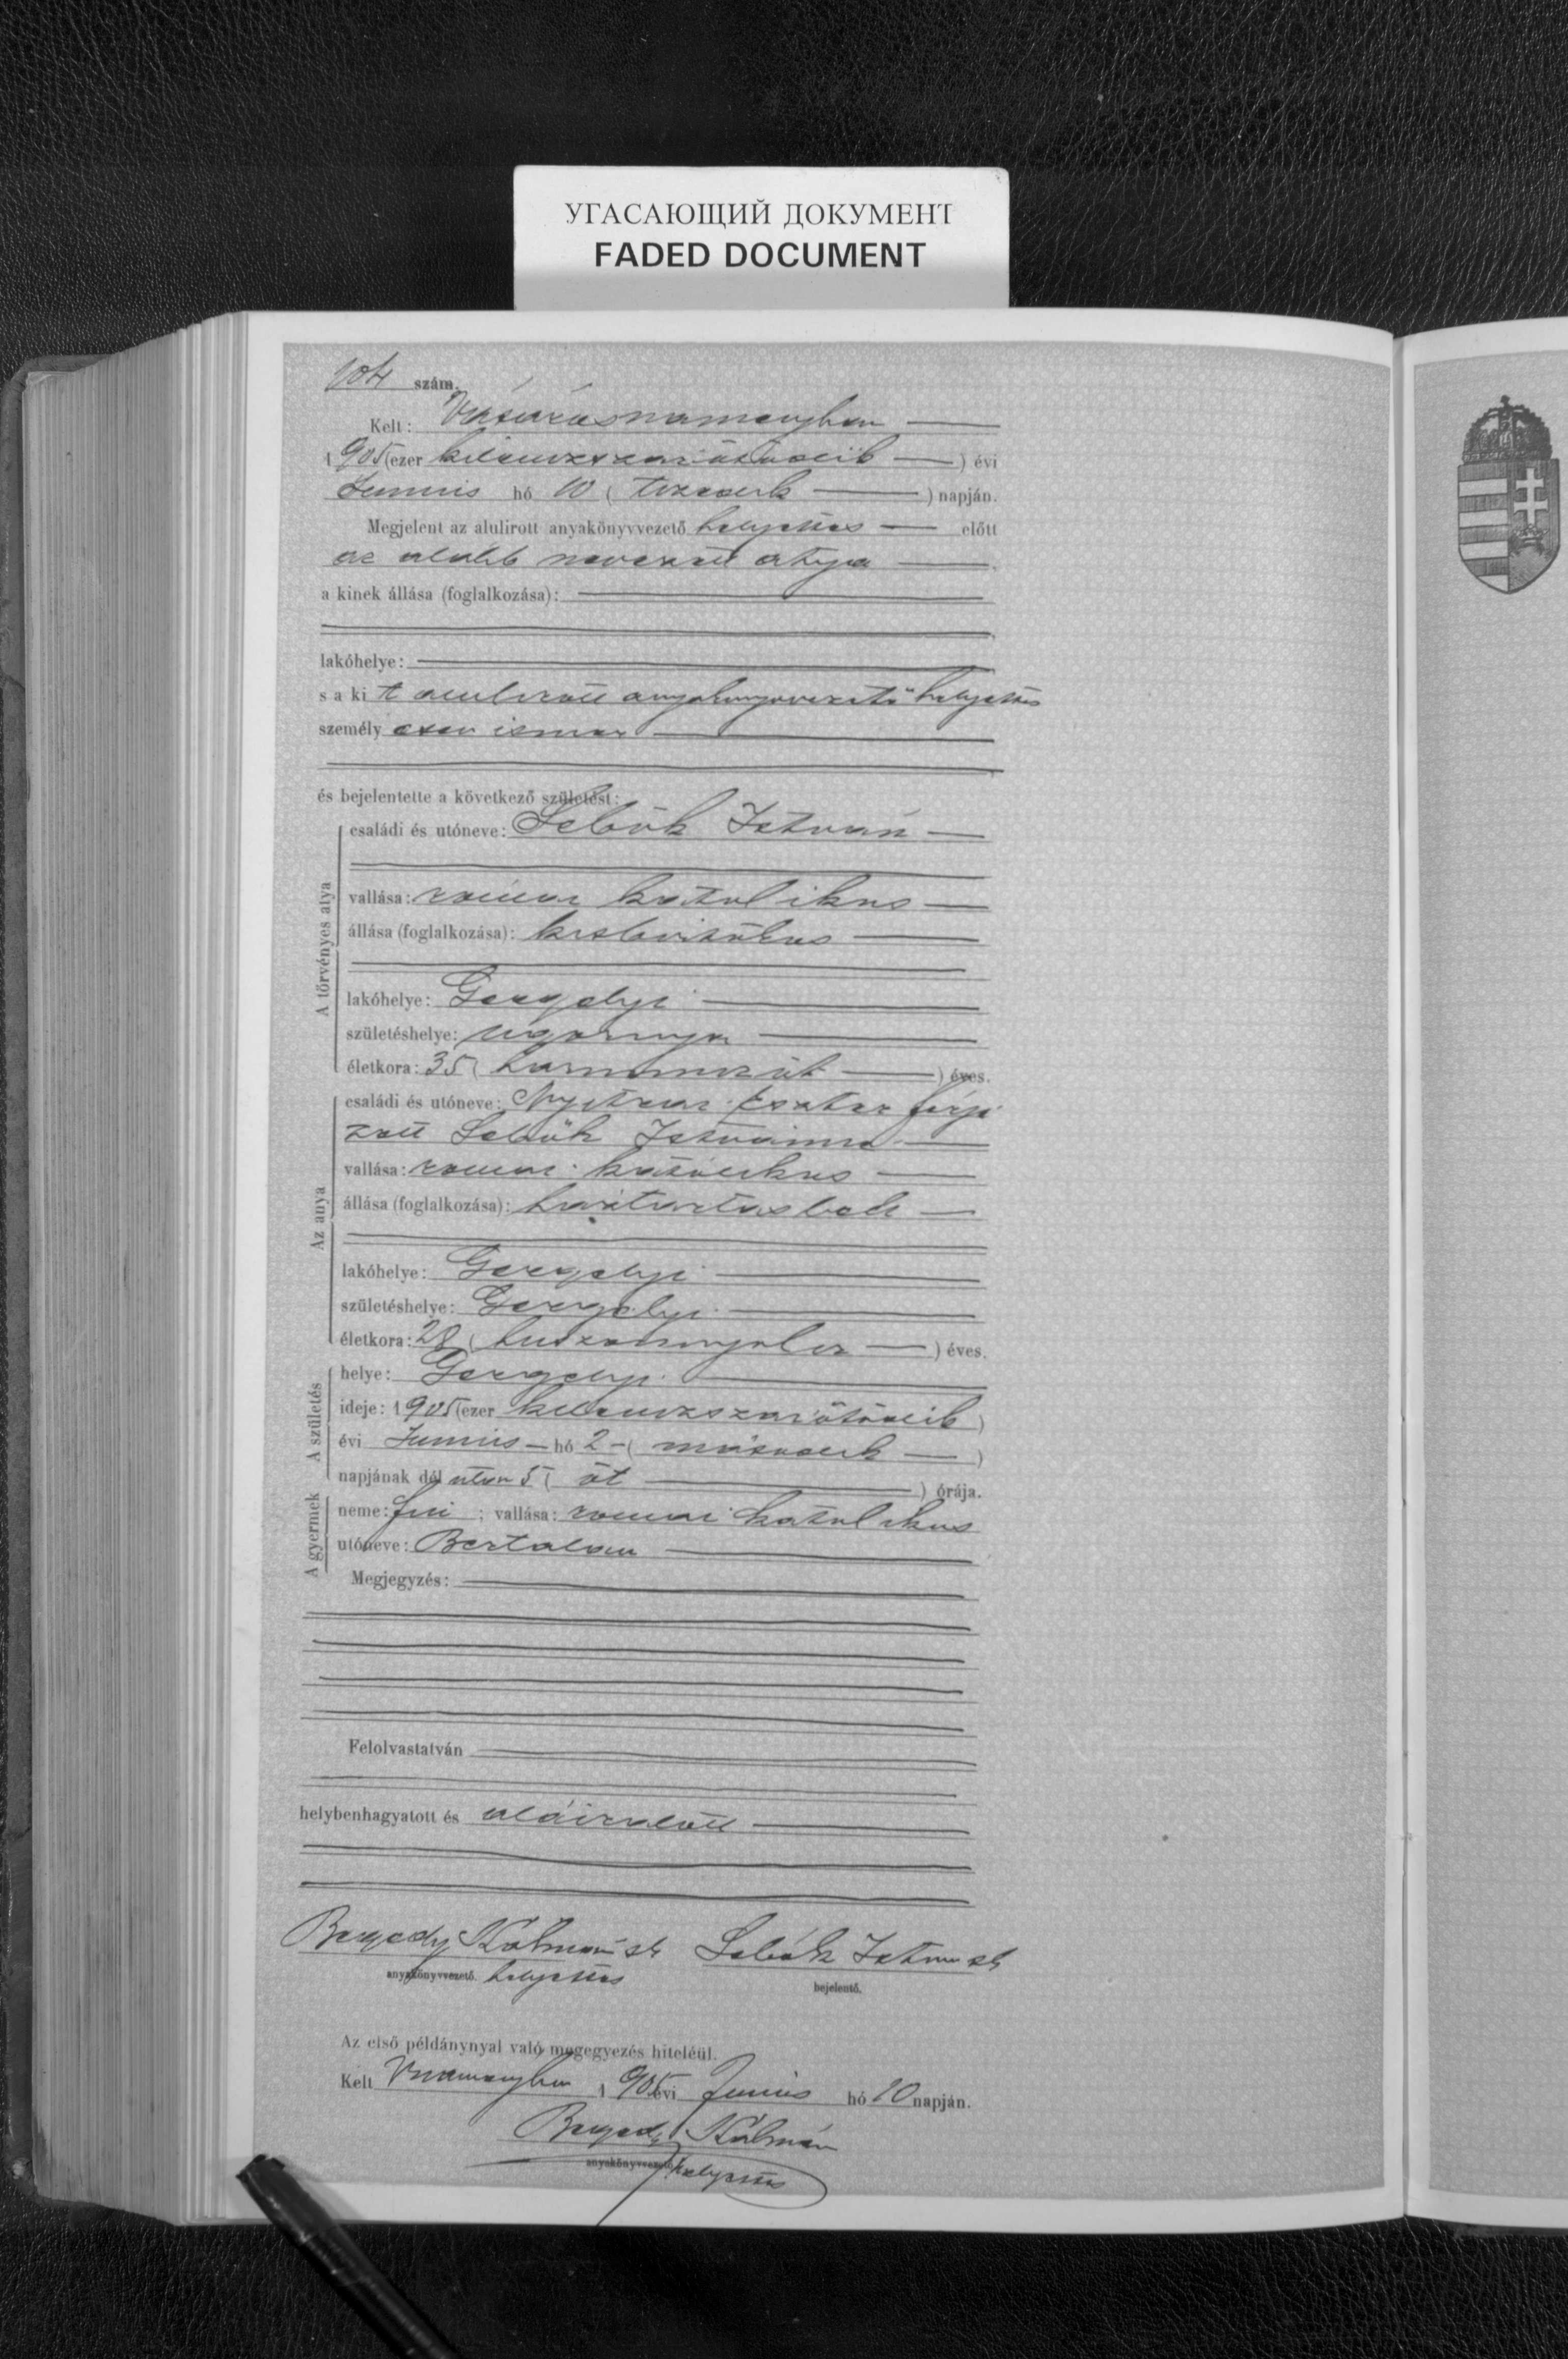 УГАСАЮЩИЙ ДОКУМЕНТ
FADED DOCUMENT
104 szám.
Kelt: Vásárosnaményban
1905 (ezer kilenczszáz ötödik) évi
Junius hó 10 (tizedik) napján.
Megjelent az alulirott anyakönyvvezető helyettes előtt
az alább nevezett atya
a kinek állása (foglalkozása):
lakóhelye:
s a kit alulirott anyakönyvvezető helyettes
személyesen ismer
és bejelentette a következő születést:
A törvényes atya
családi és utóneve: Lebők István
vallása: római katolikus
állása (foglalkozása): kisbirtokos
lakóhelye: Gergelyi
születéshelye: Ugornya
életkora: 35 (harminczöt) éves.
Az anya
családi és utóneve: Eszter férje
zett Lebők Istvánné
vallása: római katolikus
állása (foglalkozása): háztartásbeli
lakóhelye: Gergelyi
születéshelye: Gergelyi
életkora: 28 (huszonnyolcz) éves.
A születés
helye: Gergelyi
ideje: 1905 (ezer kilenczszáz ötödik)
évi Junius hó 2 (második)
napjának dél után 5 (öt) órája.
A gyermek
neme: fiu; vallása: római katolikus
utóneve: Bertalan
Megjegyzés:
Felolvastatván
helybenhagyatott és aláiratott
Bagody Kálmán sk Lebők István sk
anyakönyvvezető helyettes
bejelentő.
Az első példánynyal való megegyezés hiteléül.
Kelt Vnaményban 1905 évi Junius hó 10 napján.
Bagody Kálmán
anyakönyvvezető helyettes